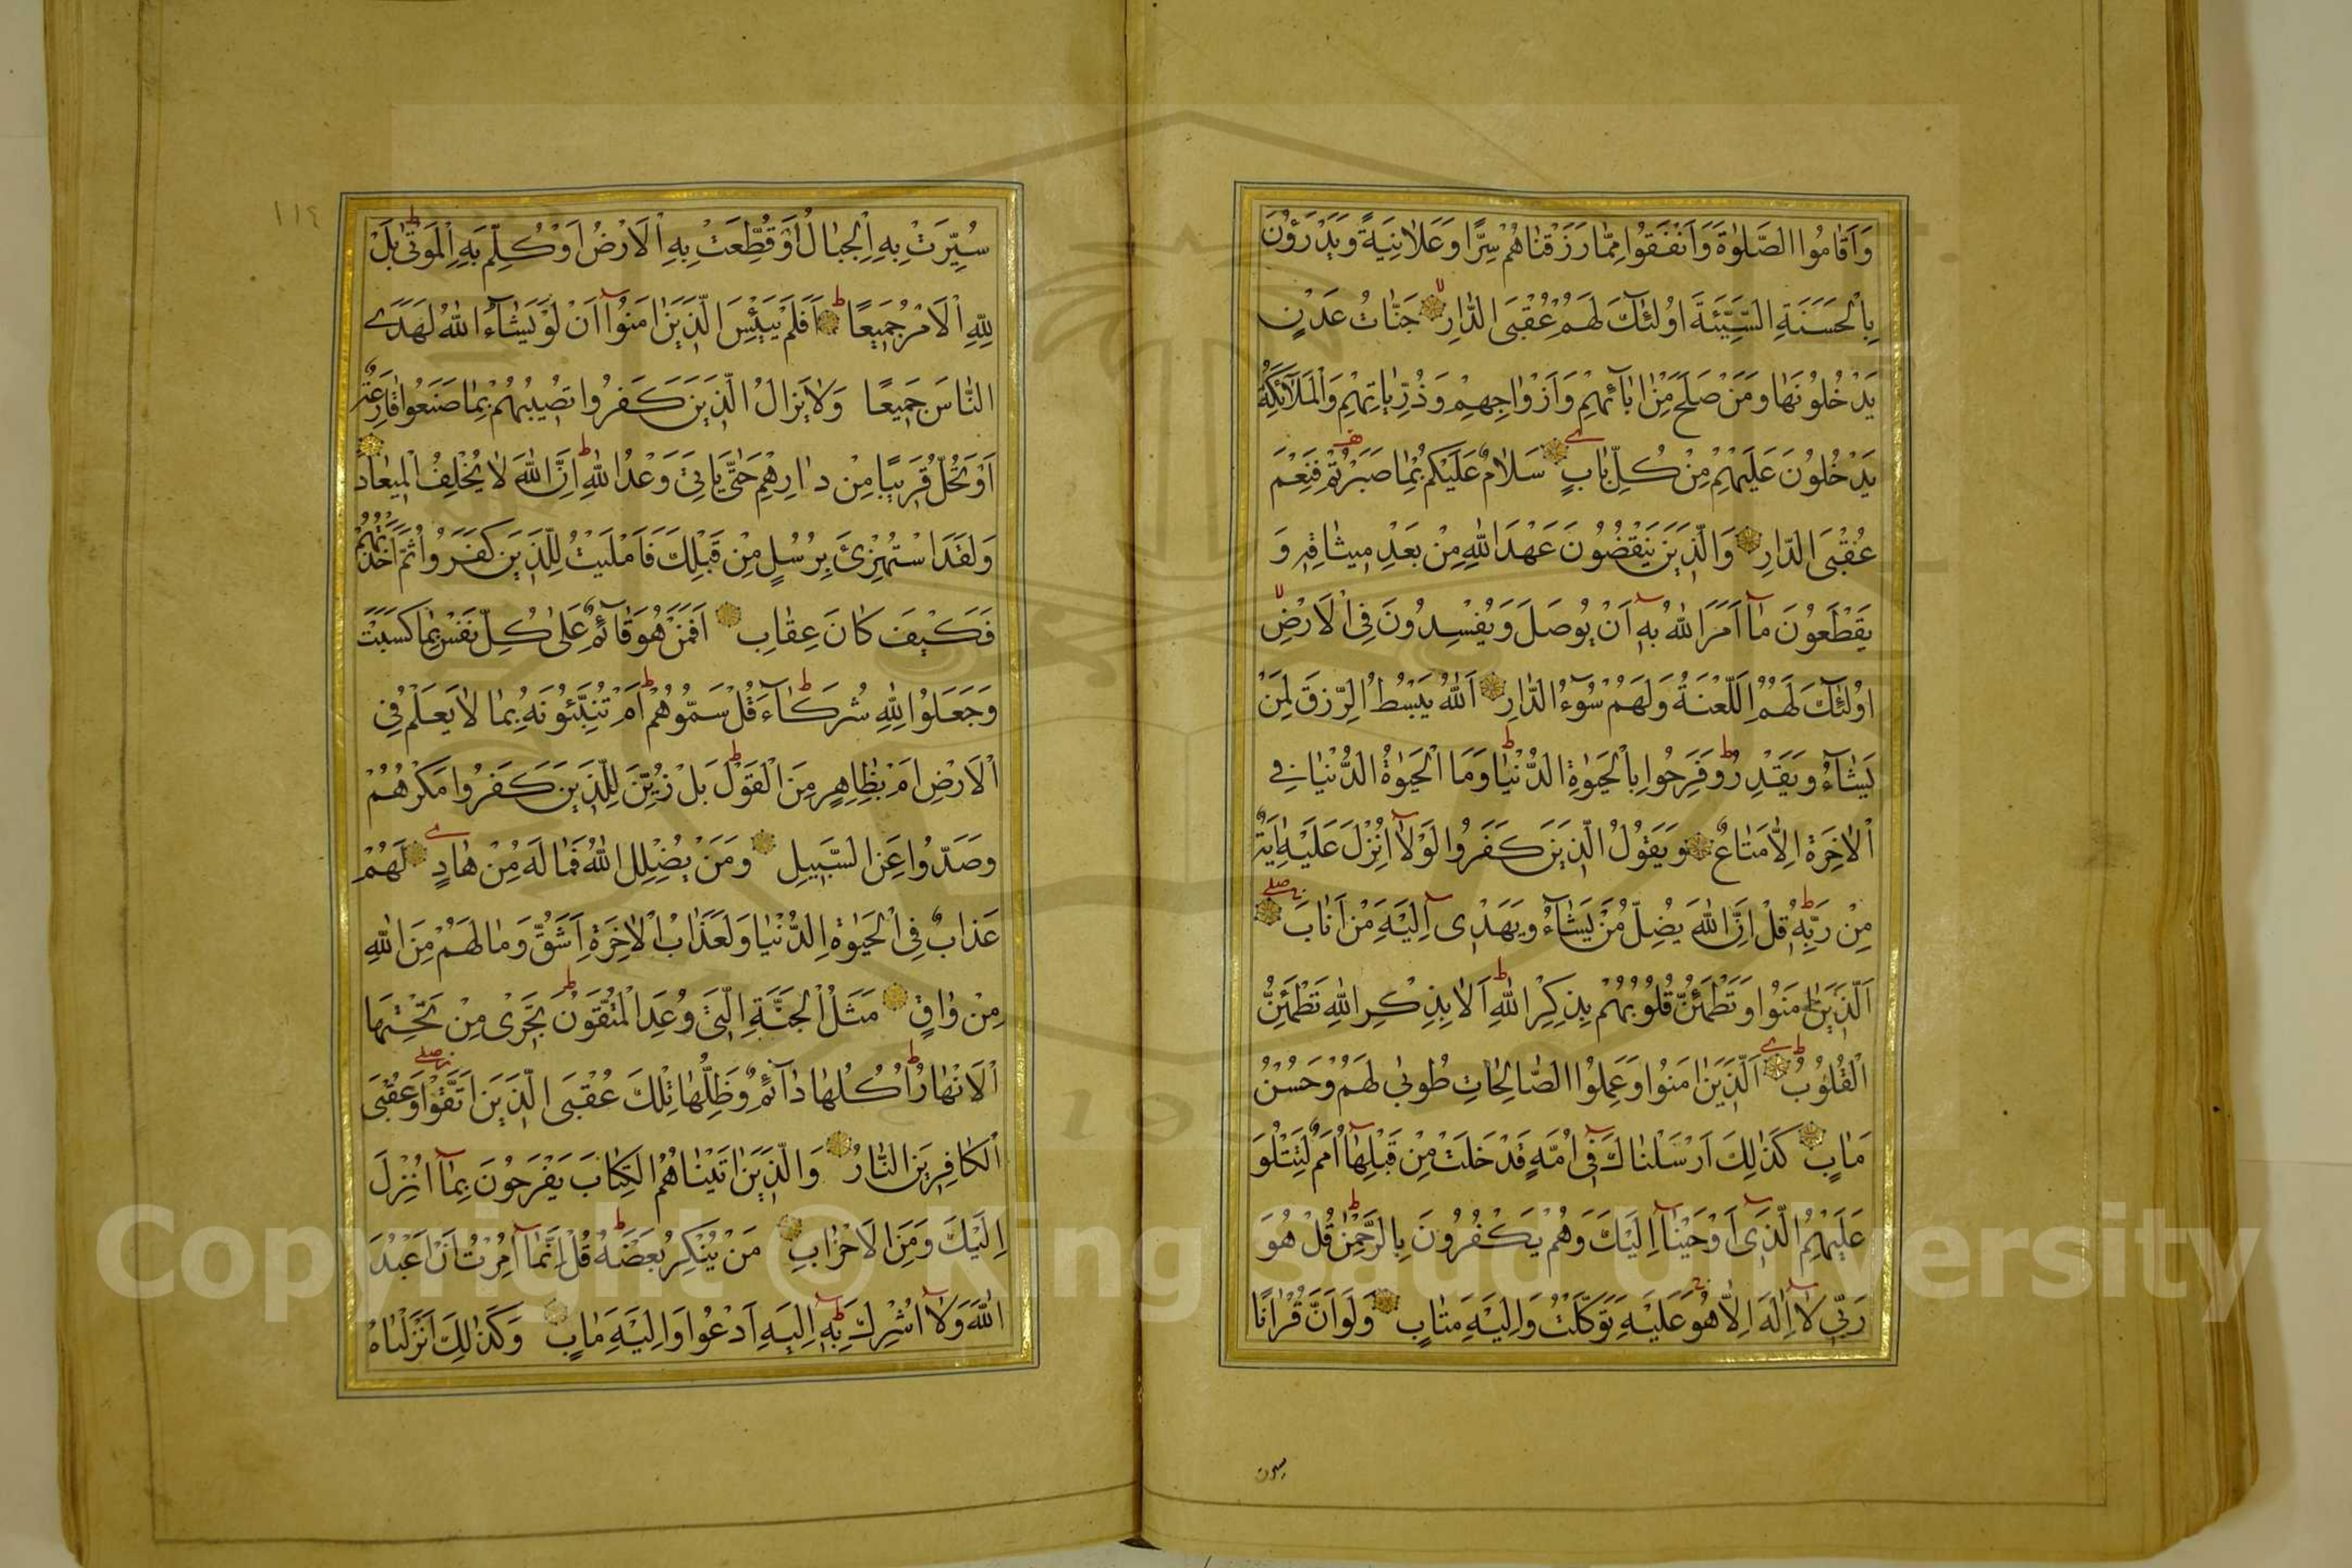 وَاَقَامُوا الصَّلٰوةَ وَاَنْفَقُوا مِمَّا رَزَقْنَاهُمْ سِرًّا وَعَلَانِيَةً وَيَدْرَؤُنَ
بِالْحَسَنَةِ السَّيِّئَةَ اُولٰئِكَ لَهُمْ عُقْبَى الدَّارِ جَنَّاتُ عَدْنٍ
يَدْخُلُونَهَا وَمَنْ صَلَحَ مِنْ اٰبَائِهِمْ وَاَزْوَاجِهِمْ وَذُرِّيَّاتِهِمْ وَالْمَلَائِكَةُ
يَدْخُلُونَ عَلَيْهِمْ مِنْ كُلِّ بَابٍ سَلَامٌ عَلَيْكُمْ بِمَا صَبَرْتُمْ فَنِعْمَ
عُقْبَى الدَّارِ وَالَّذِينَ يَنْقُضُونَ عَهْدَ اللّٰهِ مِنْ بَعْدِ مِيثَاقِهِ وَ
يَقْطَعُونَ مَا اَمَرَ اللّٰهُ بِهِ اَنْ يُوصَلَ وَيُفْسِدُونَ فِي الْاَرْضِ
اُولٰئِكَ لَهُمُ اللَّعْنَةُ وَلَهُمْ سُوءُ الدَّارِ اَللّٰهُ يَبْسُطُ الرِّزْقَ لِمَنْ
يَشَاءُ وَيَقْدِرُ وَفَرِحُوا بِالْحَيٰوةِ الدُّنْيَا وَمَا الْحَيٰوةُ الدُّنْيَا فِي
الْاٰخِرَةِ اِلَّا مَتَاعٌ وَيَقُولُ الَّذِينَ كَفَرُوا لَوْلَا اُنْزِلَ عَلَيْهِ اٰيَةٌ
مِنْ رَبِّهِ قُلْ اِنَّ اللّٰهَ يُضِلُّ مَنْ يَشَاءُ وَيَهْدِي اِلَيْهِ مَنْ اَنَابَ
اَلَّذِينَ اٰمَنُوا وَتَطْمَئِنُّ قُلُوبُهُمْ بِذِكْرِ اللّٰهِ اَلَا بِذِكْرِ اللّٰهِ تَطْمَئِنُّ
الْقُلُوبُ اَلَّذِينَ اٰمَنُوا وَعَمِلُوا الصَّالِحَاتِ طُوبٰى لَهُمْ وَحُسْنُ
مَاٰبٍ كَذٰلِكَ اَرْسَلْنَاكَ فِي اُمَّةٍ قَدْ خَلَتْ مِنْ قَبْلِهَا اُمَمٌ لِتَتْلُوَ
عَلَيْهِمُ الَّذِي اَوْحَيْنَا اِلَيْكَ وَهُمْ يَكْفُرُونَ بِالرَّحْمٰنِ قُلْ هُوَ
رَبِّي لَا اِلٰهَ اِلَّا هُوَ عَلَيْهِ تَوَكَّلْتُ وَاِلَيْهِ مَتَابِ وَلَوْ اَنَّ قُرْاٰنًا
١١٤
سُيِّرَتْ بِهِ الْجِبَالُ اَوْ قُطِّعَتْ بِهِ الْاَرْضُ اَوْ كُلِّمَ بِهِ الْمَوْتٰى بَلْ
لِلّٰهِ الْاَمْرُ جَمِيعًا اَفَلَمْ يَيْئَسِ الَّذِينَ اٰمَنُوا اَنْ لَوْ يَشَاءُ اللّٰهُ لَهَدَى
النَّاسَ جَمِيعًا وَلَا يَزَالُ الَّذِينَ كَفَرُوا تُصِيبُهُمْ بِمَا صَنَعُوا قَارِعَةٌ
اَوْ تَحُلُّ قَرِيبًا مِنْ دَارِهِمْ حَتّٰى يَاْتِيَ وَعْدُ اللّٰهِ اِنَّ اللّٰهَ لَا يُخْلِفُ الْمِيعَادَ
وَلَقَدِ اسْتُهْزِئَ بِرُسُلٍ مِنْ قَبْلِكَ فَاَمْلَيْتُ لِلَّذِينَ كَفَرُوا ثُمَّ اَخَذْتُهُمْ
فَكَيْفَ كَانَ عِقَابِ اَفَمَنْ هُوَ قَائِمٌ عَلٰى كُلِّ نَفْسٍ بِمَا كَسَبَتْ
وَجَعَلُوا لِلّٰهِ شُرَكَاءَ قُلْ سَمُّوهُمْ اَمْ تُنَبِّئُونَهُ بِمَا لَا يَعْلَمُ فِي
الْاَرْضِ اَمْ بِظَاهِرٍ مِنَ الْقَوْلِ بَلْ زُيِّنَ لِلَّذِينَ كَفَرُوا مَكْرُهُمْ
وَصَدُّوا عَنِ السَّبِيلِ وَمَنْ يُضْلِلِ اللّٰهُ فَمَا لَهُ مِنْ هَادٍ لَهُمْ
عَذَابٌ فِي الْحَيٰوةِ الدُّنْيَا وَلَعَذَابُ الْاٰخِرَةِ اَشَقُّ وَمَا لَهُمْ مِنَ اللّٰهِ
مِنْ وَاقٍ مَثَلُ الْجَنَّةِ الَّتِي وُعِدَ الْمُتَّقُونَ تَجْرِي مِنْ تَحْتِهَا
الْاَنْهَارُ اُكُلُهَا دَائِمٌ وَظِلُّهَا تِلْكَ عُقْبَى الَّذِينَ اتَّقَوْا وَعُقْبَى
الْكَافِرِينَ النَّارُ وَالَّذِينَ اٰتَيْنَاهُمُ الْكِتَابَ يَفْرَحُونَ بِمَا اُنْزِلَ
اِلَيْكَ وَمِنَ الْاَحْزَابِ مَنْ يُنْكِرُ بَعْضَهُ قُلْ اِنَّمَا اُمِرْتُ اَنْ اَعْبُدَ
اللّٰهَ وَلَا اُشْرِكَ بِهِ اِلَيْهِ اَدْعُوا وَاِلَيْهِ مَاٰبِ وَكَذٰلِكَ اَنْزَلْنَاهُ
Copyright © King Saud University